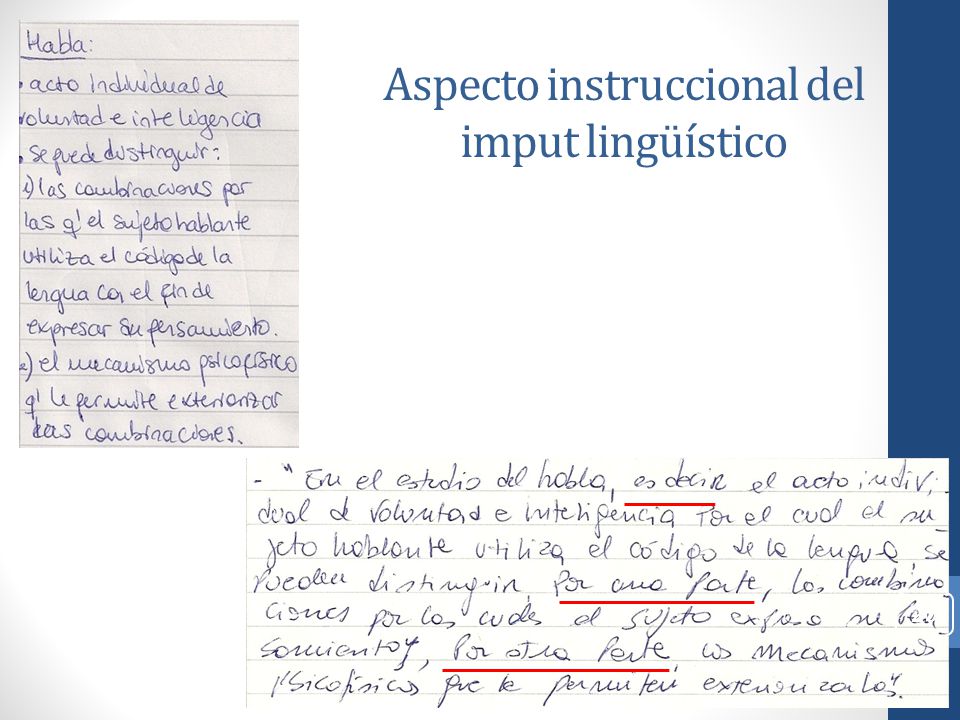 Aspecto instruccional del
imput lingüístico
Habla:
• acto individual de
voluntad e inteligencia
• Se puede distinguir:
1) las combinaciones por
las q' el sujeto hablante
utiliza el código de la
lengua con el fin de
expresar su pensamiento.
2) el mecanismo psicofísico
q' le permite exteriorizar
combinaciones.
- "En el estudio del habla, es decir el acto indivi-
dual de voluntad e inteligencia por el cual el su
jeto hablante utiliza el código de la lengua, se
pueden distinguir, por una parte, las combina
ciones por las cuales el sujeto expresa su pen
samiento y, por otra parte, los mecanismos
psicofísicos que le permiten exteriorizarlas".